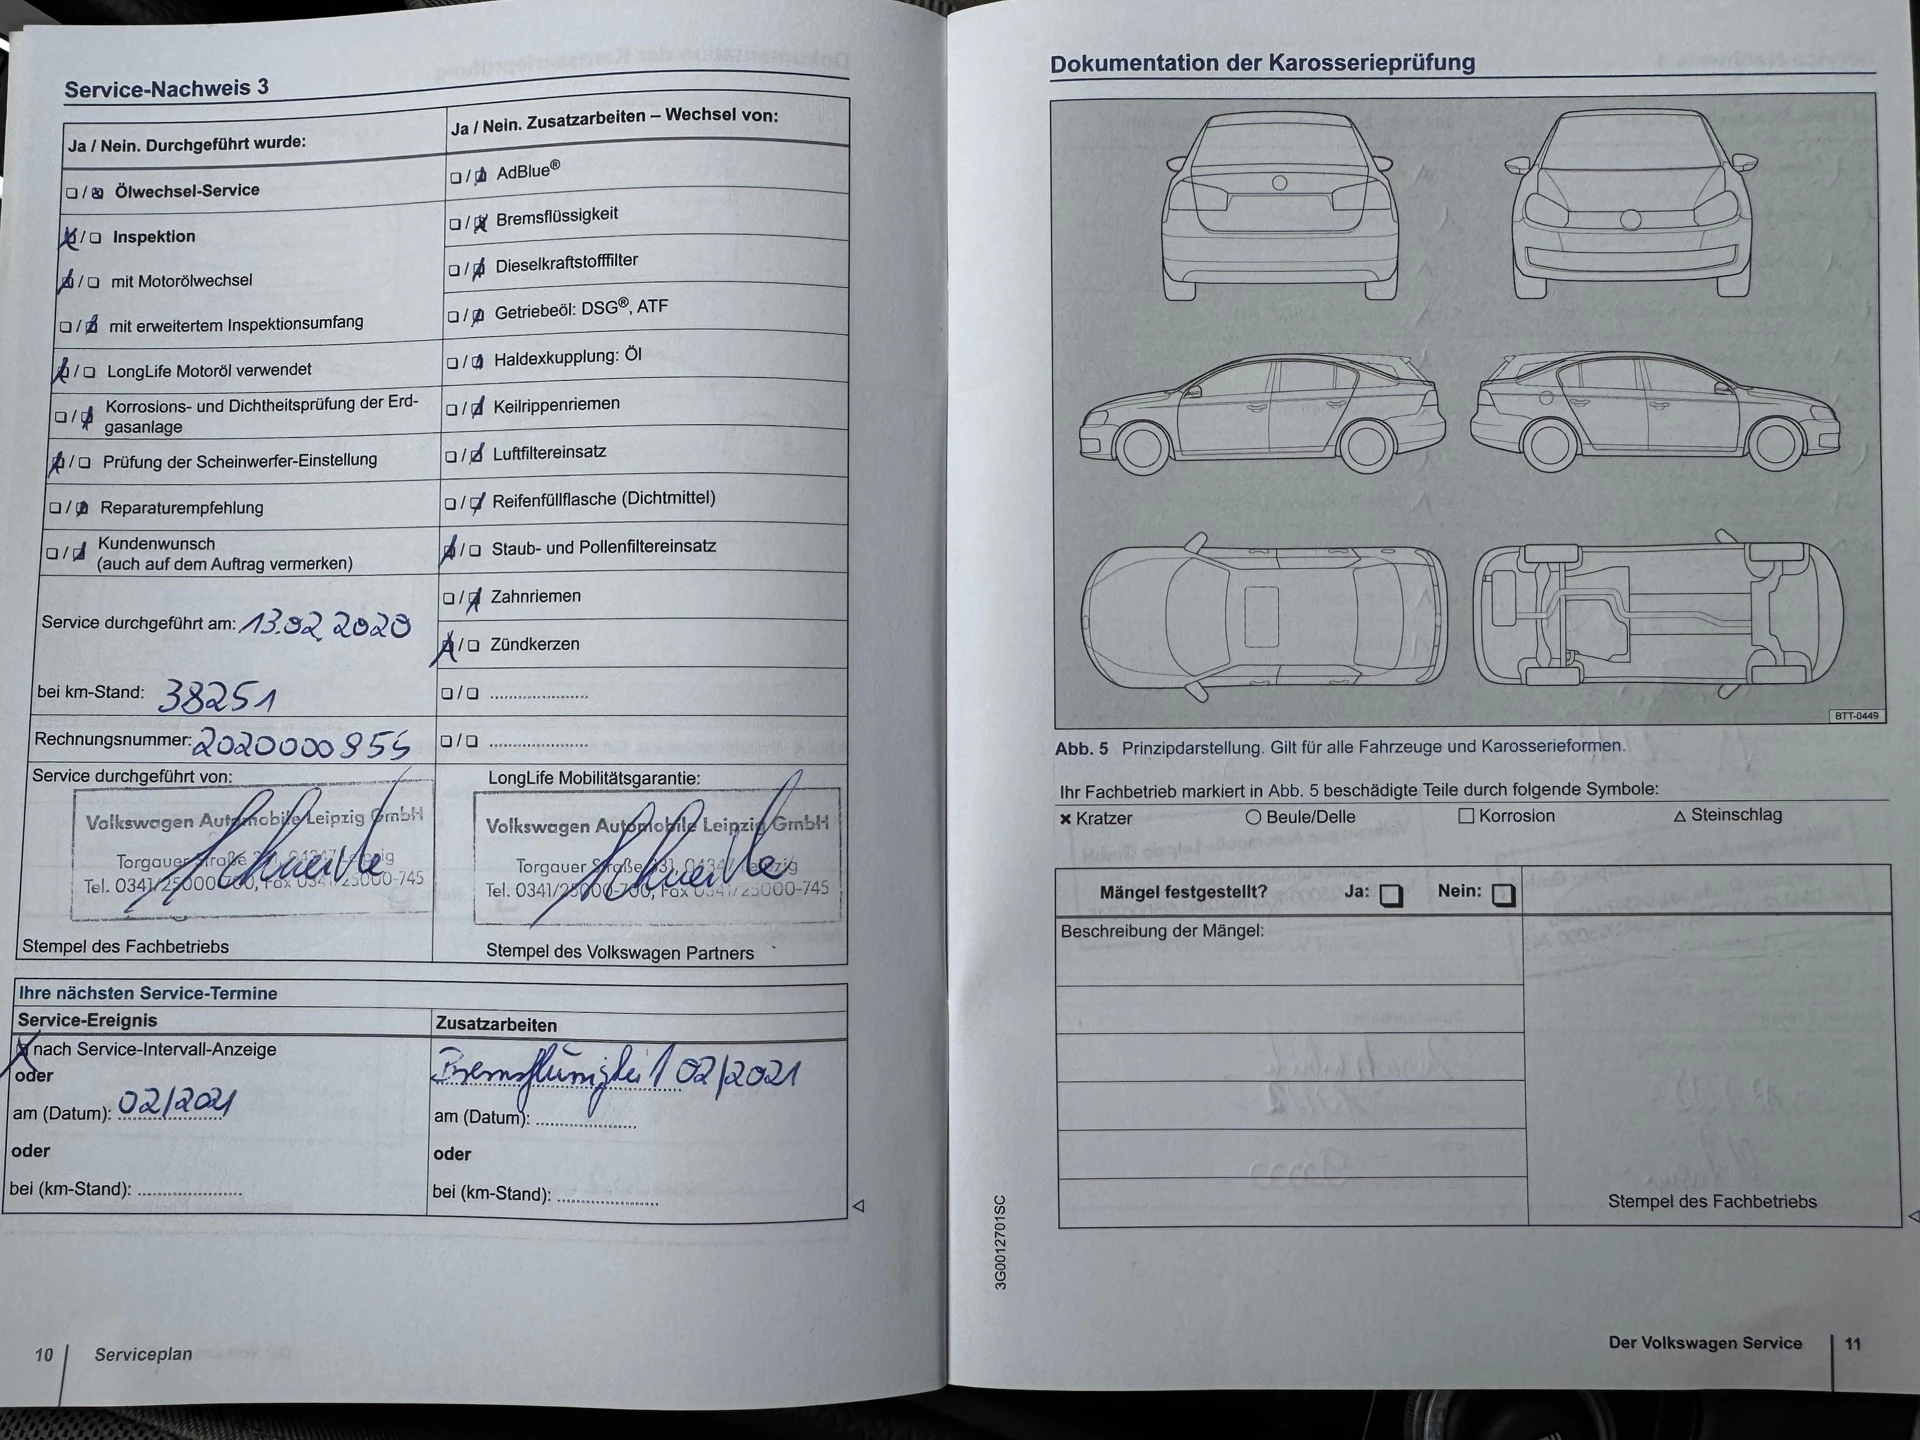 Service-Nachweis 3
Ja / Nein. Durchgeführt wurde:
Ölwechsel-Service
Inspektion
mit Motorölwechsel
mit erweitertem Inspektionsumfang
LongLife Motoröl verwendet
Korrosions- und Dichtheitsprüfung der Erd-
gasanlage
Prüfung der Scheinwerfer-Einstellung
Reparaturempfehlung
Kundenwunsch
(auch auf dem Auftrag vermerken)
Service durchgeführt am: 13.02.2020
bei km-Stand: 38251
Rechnungsnummer: 2020000955
Ja / Nein. Zusatzarbeiten – Wechsel von:
AdBlue®
Bremsflüssigkeit
Dieselkraftstofffilter
Getriebeöl: DSG®, ATF
Haldexkupplung: Öl
Keilrippenriemen
Luftfiltereinsatz
Reifenfüllflasche (Dichtmittel)
Staub- und Pollenfiltereinsatz
Zahnriemen
Zündkerzen
Service durchgeführt von:
Volkswagen Automobile Leipzig GmbH
Torgauer Straße 331, 04347 Leipzig
Tel. 0341/25000-700, Fax 0341/25000-745
Stempel des Fachbetriebs
LongLife Mobilitätsgarantie:
Volkswagen Automobile Leipzig GmbH
Torgauer Straße 331, 04347 Leipzig
Tel. 0341/25000-700, Fax 0341/25000-745
Stempel des Volkswagen Partners
Ihre nächsten Service-Termine
Service-Ereignis
nach Service-Intervall-Anzeige
oder
am (Datum): 02/2021
oder
bei (km-Stand):
Zusatzarbeiten
Bremsflüssigkeit 02/2021
am (Datum):
oder
bei (km-Stand):
10
Serviceplan
Dokumentation der Karosserieprüfung
BTT-0449
Abb. 5 Prinzipdarstellung. Gilt für alle Fahrzeuge und Karosserieformen.
Ihr Fachbetrieb markiert in Abb. 5 beschädigte Teile durch folgende Symbole:
Kratzer
Beule/Delle
Korrosion
Steinschlag
Mängel festgestellt? Ja: Nein:
Beschreibung der Mängel:
Stempel des Fachbetriebs
3G0012701SC
Der Volkswagen Service
11